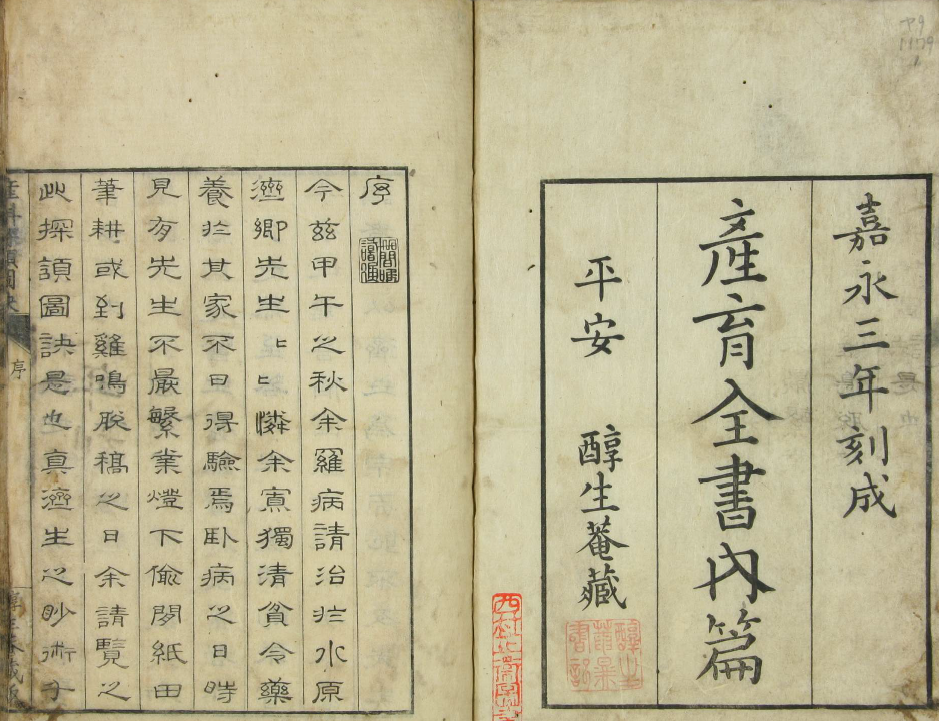 嘉永三年刻成
產育全書内篇
平安 醇生菴藏
序
今茲甲午之秋余羅病請治於水原
濟卿先生〻〻憐余寡獨清貧令藥
養於其家不日得驗焉臥病之日時
見有先生不厭繁業燈下偸閑紙田
筆耕或到雞鳴脫稿之日余請覽之
此探頷圖訣是也真濟生之妙術
產科探頷圖訣 序 醇生菴藏版